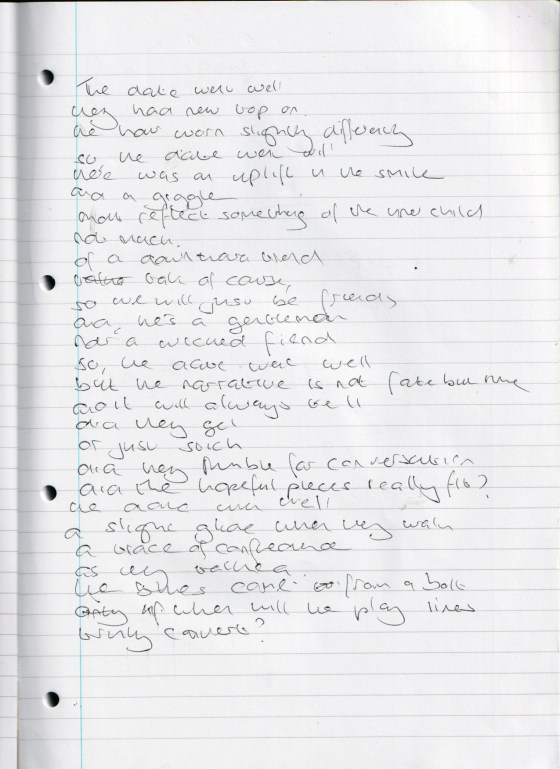 The date went well
they had new top on
he had worn slightly differently
so, the date went well
there was an uplift in the smile
and a giggle
reflect something of the inner child
not much
of a
talk of course,
so we will just be friends
and, he's a gentleman
not a wicked fiend
so, the date went well
but the narrative is not fate but time
and it will always tell
did they gel
or just stick
did they fumble for conversation
did the hopeful pieces really fit?
the date went well
a slight glide when they walk
a trace of confidence
as they talked
the came from a bolt
of when will the play lines
convert?